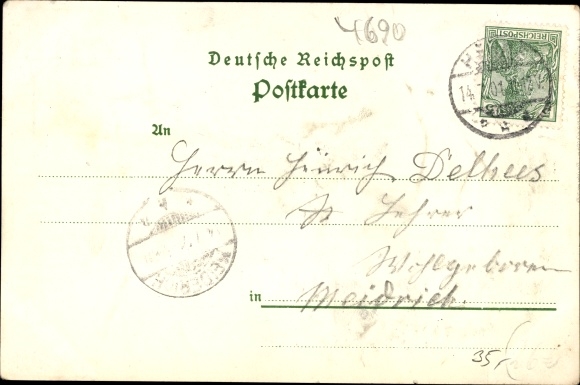 4690
REICHSPOST
Deutsche Reichspost
Postkarte
14. 01
An
Herrn Heinrich Delhees
Lehrer
Wohlgeboren
in Meidrich.
35,